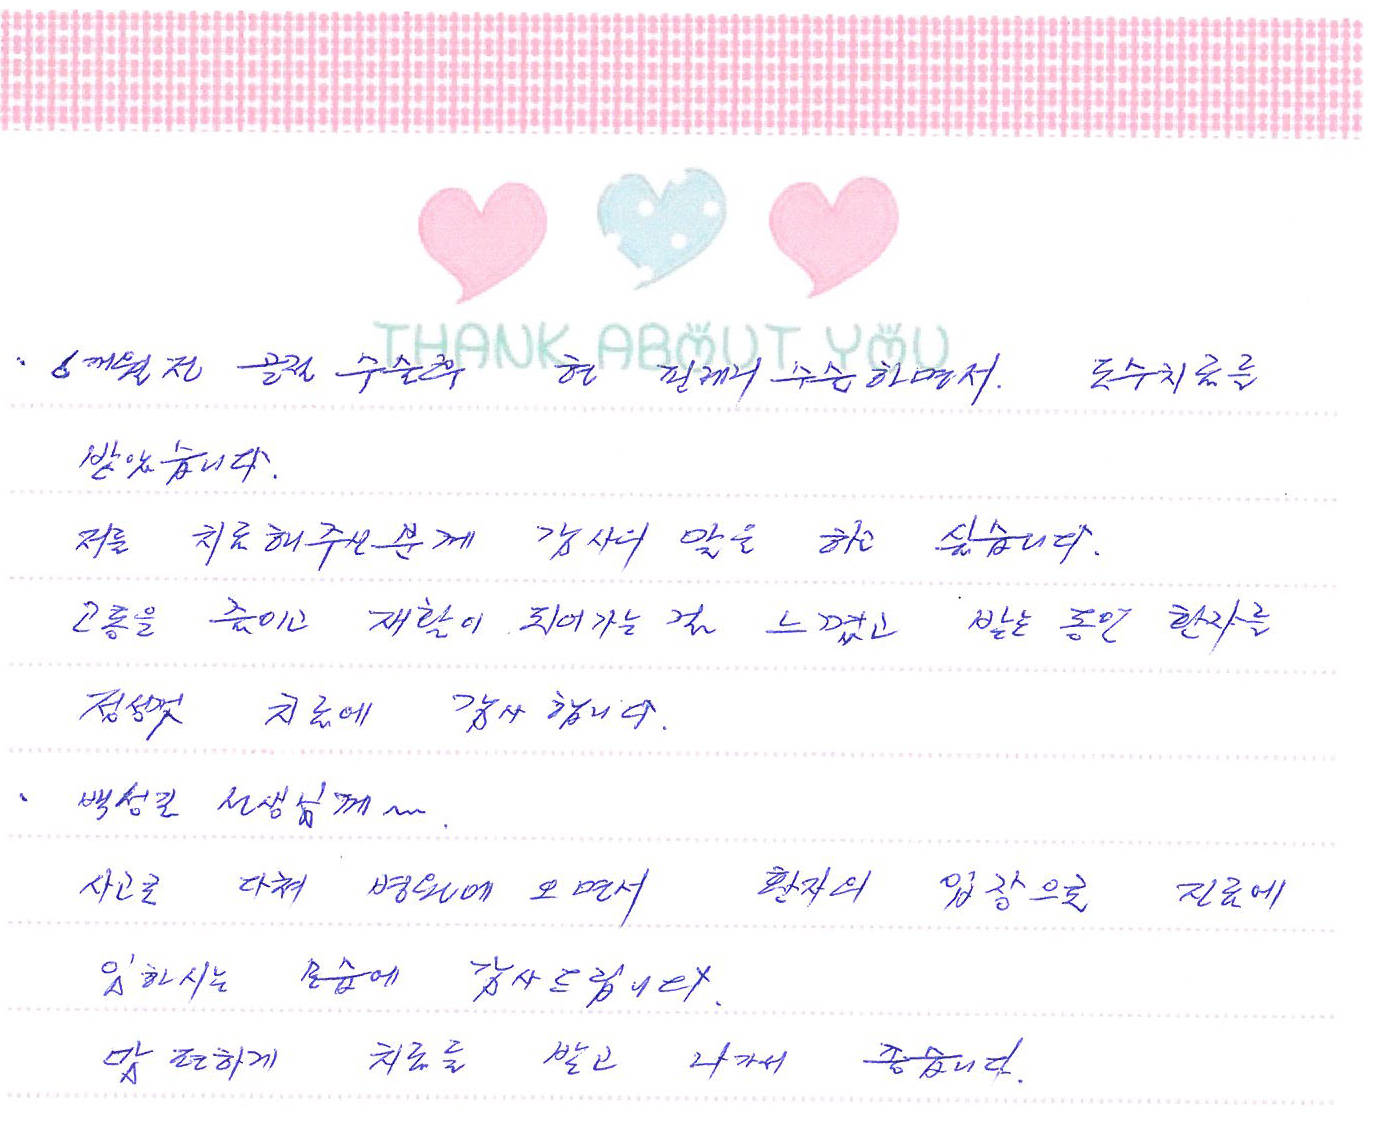 THANK ABOUT YOU
· 6개월전 골절 수술후 현 핀제거 수술하면서. 도수치료를
받았습니다.
저를 치료해주신분께 감사의 말을 하고 싶습니다.
고통을 줄이고 재활이 되어가는 걸 느꼈고 받는 동안 환자를
정성껏 치료에 감사합니다.
· 백성길 선생님께~.
사고로 다쳐 병원에 오면서 환자의 입장으로 진료에
임하시는 모습에 감사드립니다.
맘 편하게 치료를 받고 나가서 좋습니다.